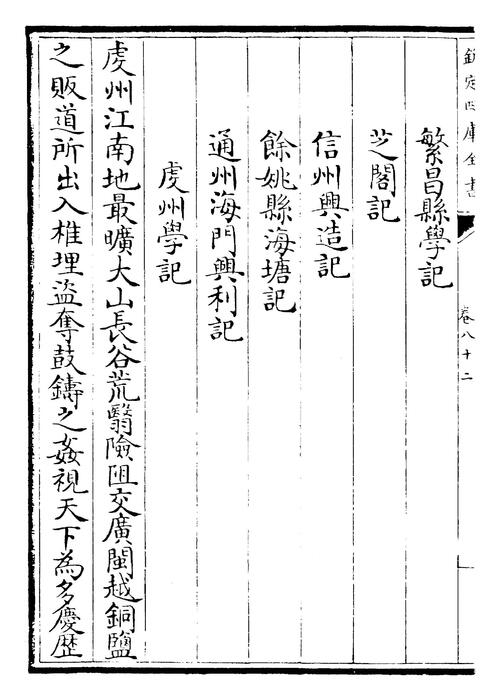 欽定四庫全書
卷八十二
繁昌縣學記
芝閣記
信州興造記
餘姚縣海塘記
通州海門興利記
虔州學記
虔州江南地最曠大山長谷荒翳險阻交廣閩越銅鹽
之販道所出入椎埋盜奪鼓鑄之姦視天下為多慶歷